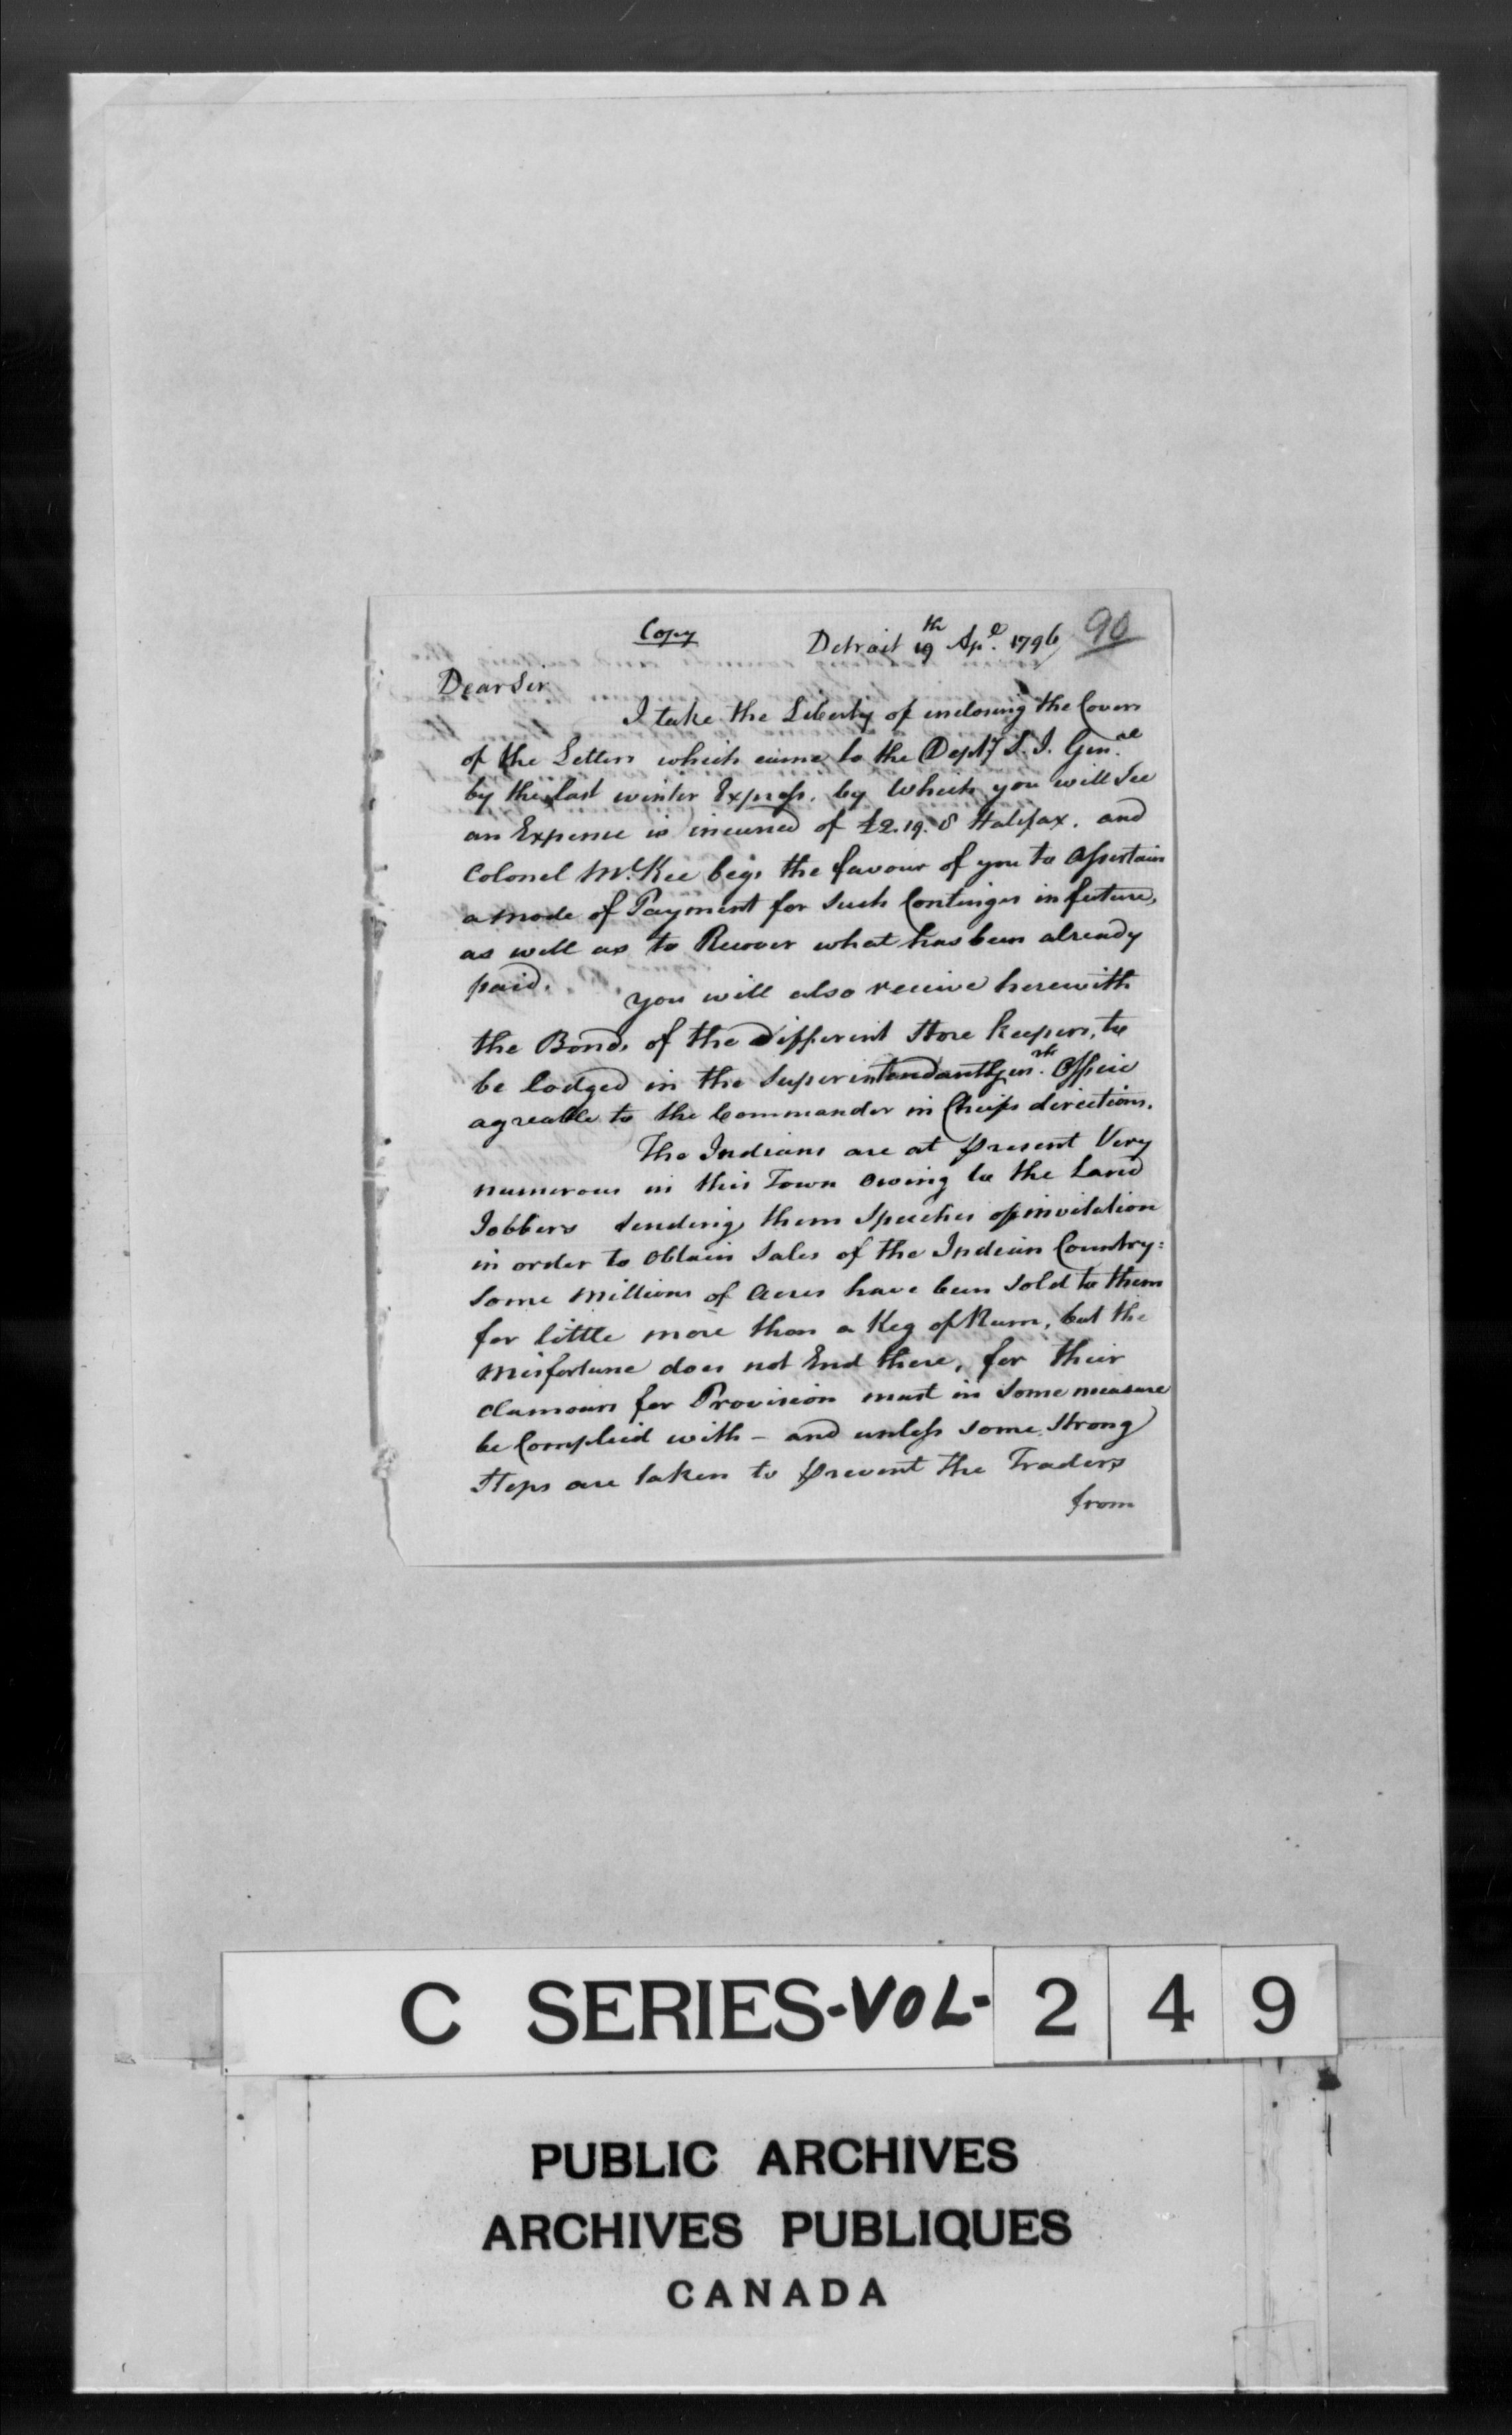 Copy
Detroit 19th Apl. 1796
90
Dear Sir
I take the Liberty of inclosing the Covers
of the Letters which came to the Depty S. I. Genal
by the last winter Express, by which you will See
an Expence is incurred of £2.19.8 Halifax. and
Colonel McKee begs the favour of you to Assertain
a mode of Payment for Such Continges in future,
as well as to Recover what has been already
paid.
you will also receive herewith
the Bonds of the different Store keepers, to
be lodged in the Superintendant Genrls Office
agreable to the Commander in Chiefs directions.
The Indians are at present Very
numerous in this Town Owing to the Land
Jobbers sending them Speeches of invitation
in order to Obtain Sales of the Indian Country:
Some Millions of Acres have been Sold to them
for little more than a Keg of Rum, but the
Misfortune does not End there, for their
Clamours for Provision must in Some measure
be Complied with - and unless some Strong
Steps are taken to prevent the Traders
from
C SERIES-VOL-249
PUBLIC ARCHIVES
ARCHIVES PUBLIQUES
CANADA